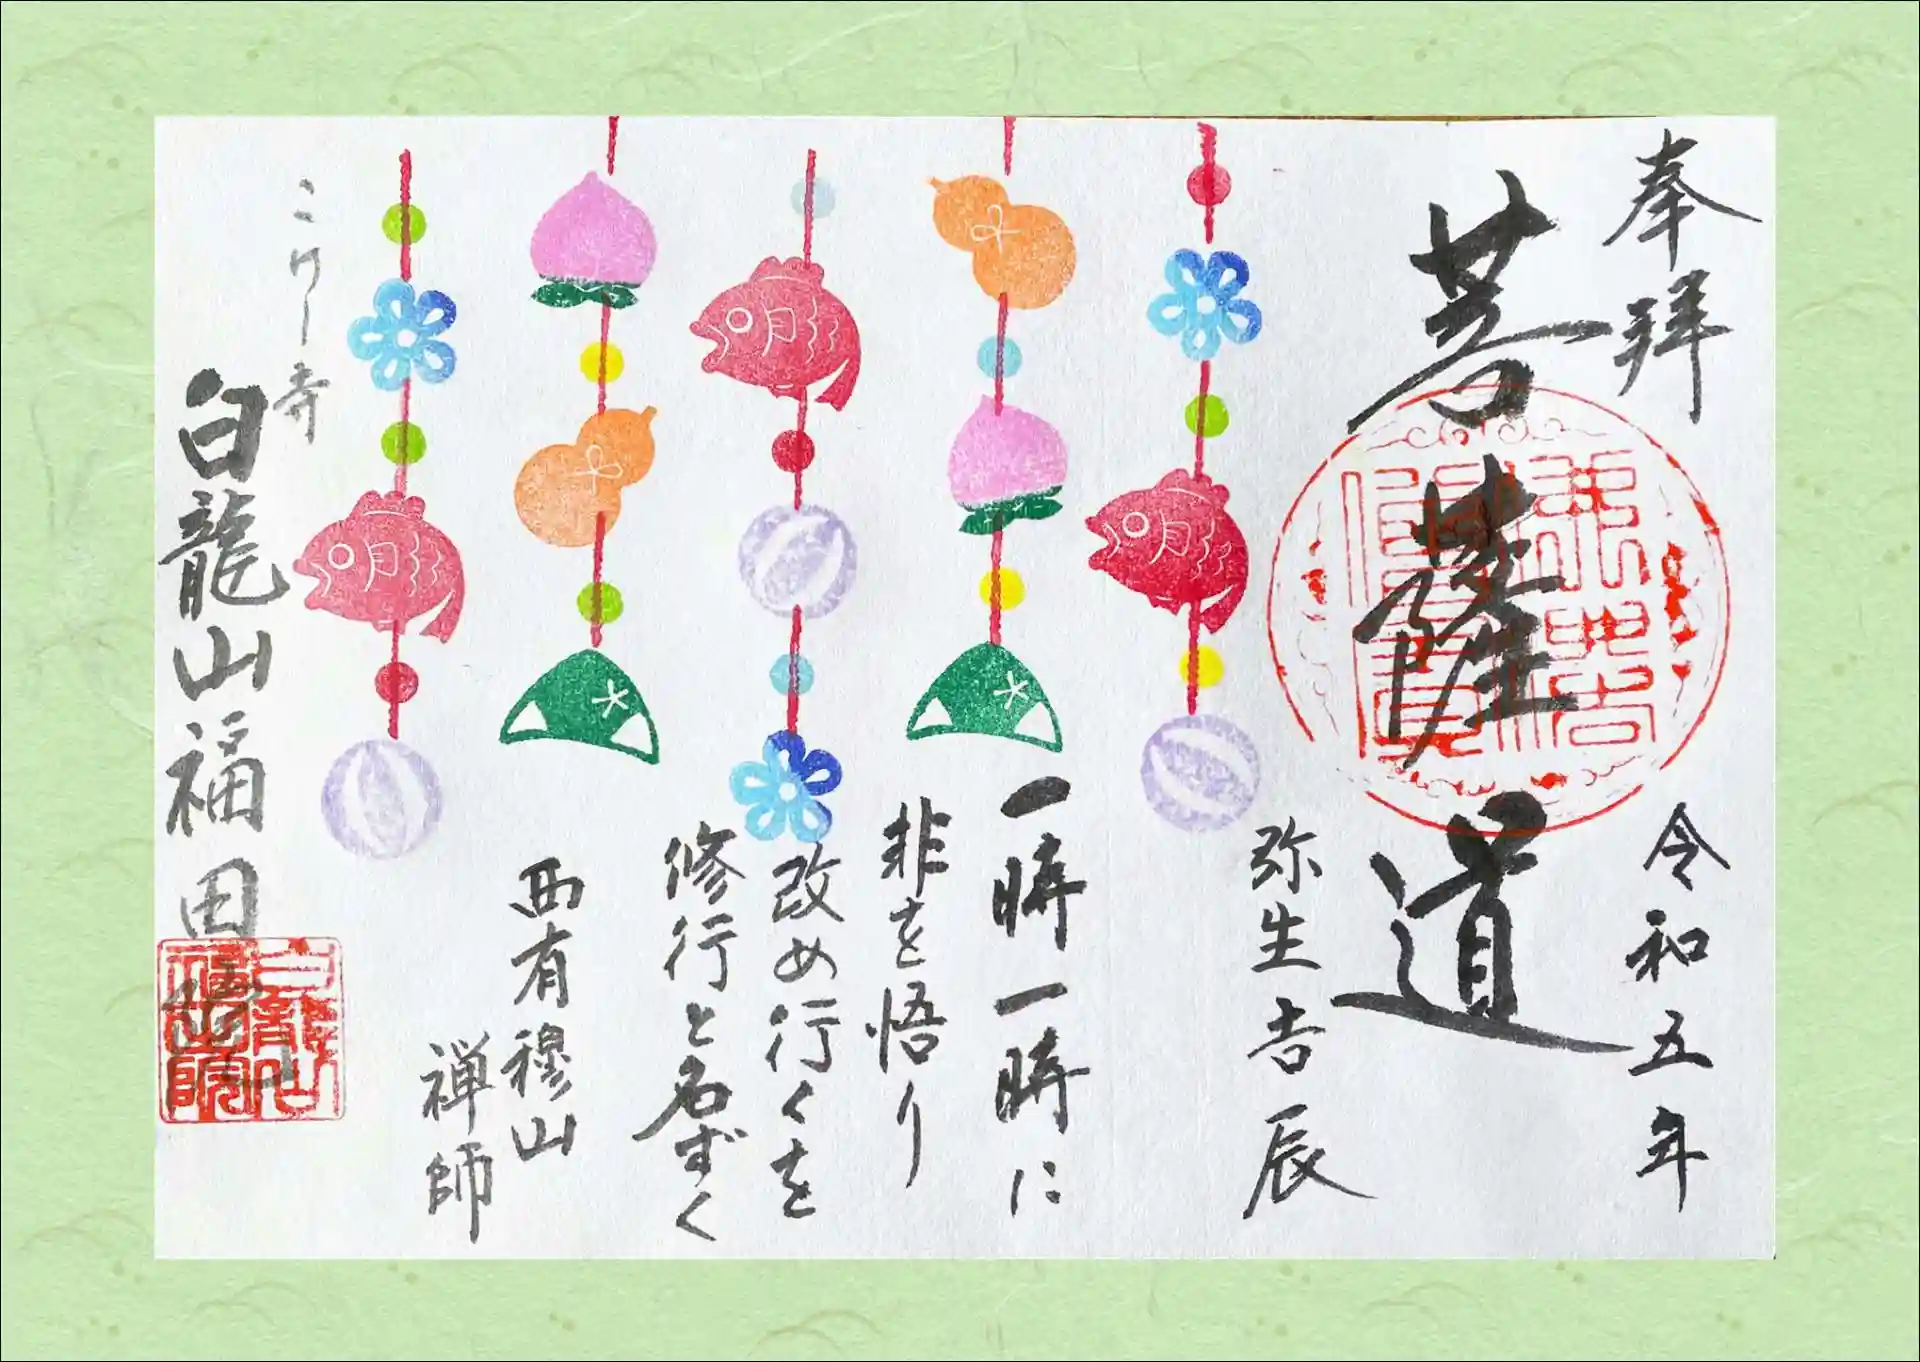 奉拝
令和五年
菩薩道
弥生吉辰
一時一時に
非を悟り
改め行くを
修行と名ずく
西有穆山
禅師
こけし寺
白龍山福田